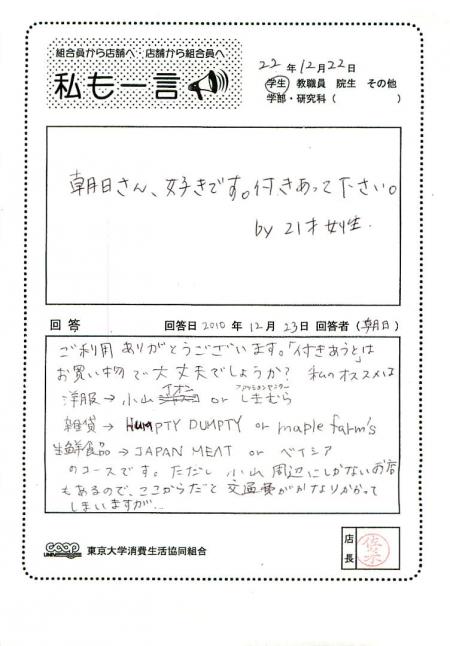 組合員から店舗へ・店舗から組合員へ
私も一言
22年12月22日
学生 教職員 院生 その他
学部・研究科( )
朝日さん、好きです。付きあって下さい。
by 21才女性.
回答 回答日 2010年 12月 23日 回答者(朝日)
ご利用ありがとうございます。「付きあうと」は
お買い物で大丈夫でしょうか? 私のオススメは
洋服→小山 イオン or ファッションセンターしまむら
雑貨→ HUMPTY DUMPTY or maple farm's
生鮮食品→ JAPAN MEAT or ベイシア
のコースです。ただし 小山周辺にしかないお店
もあるので、ここからだと 交通費がかなりかかって
しまいますが…
UNIV CO-OP 東京大学消費生活協同組合
店長